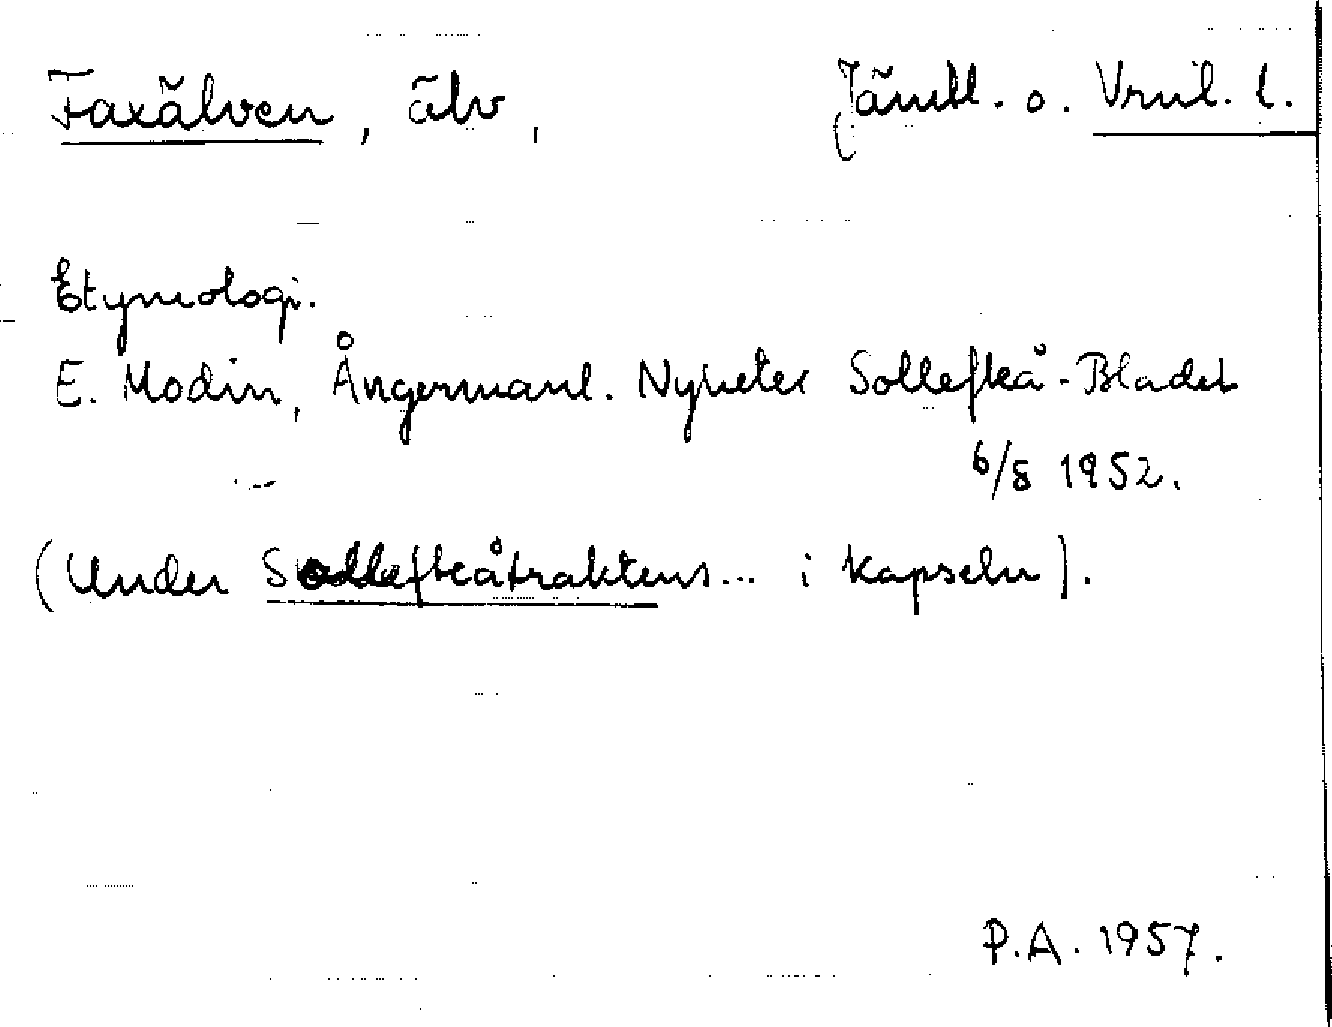 Faxälven, älv, Jämtl. o. Vrnl. l.
Etymologi.
E. Modin, Ångermanl. Nyheter Sollefteå-Bladet
6/8 1952.
(Under Sollefteåtraktens... i kapseln).
P.A. 1957.